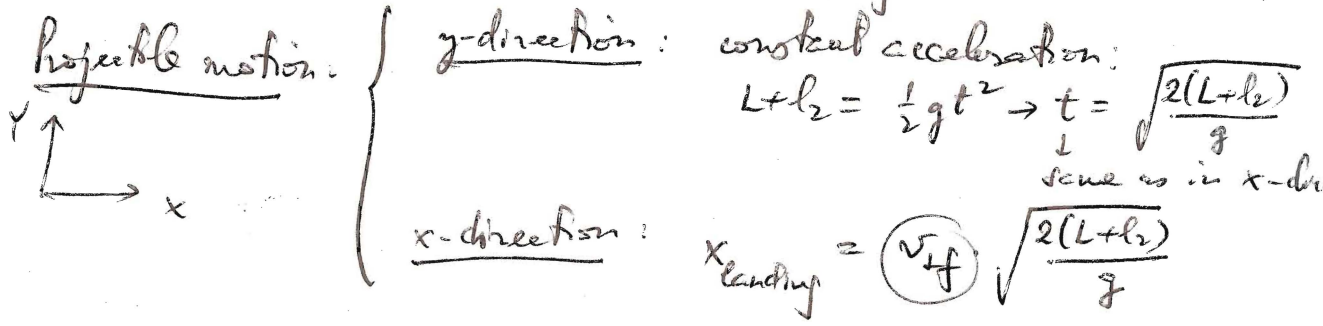 Projectile motion: y-direction: constant acceleration:
L+l₂ = 1/2 gt² → t = √(2(L+l₂)/g)
Y
↓
same as in x-dir
X
x-direction: x_landing = v_1f · √(2(L+l₂)/g)